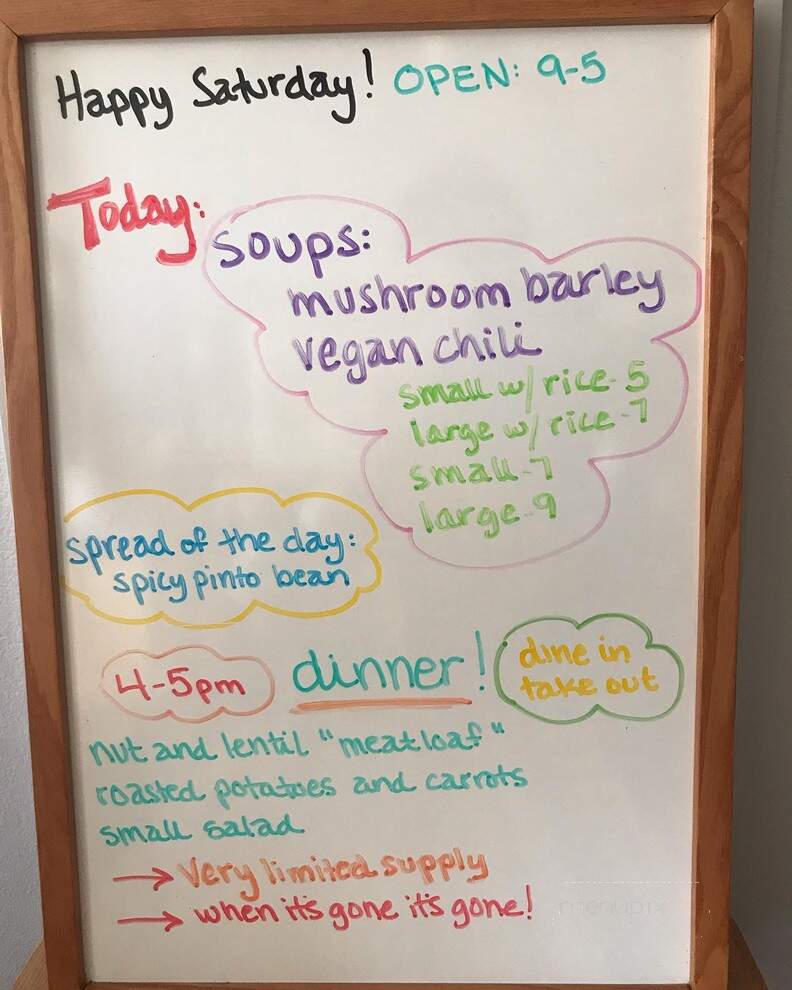 Happy Saturday! OPEN: 9-5
Today:
soups:
mushroom barley
vegan chili
small w/ rice-5
large w/ rice-7
small-7
large-9
spread of the day:
spicy pinto bean
4-5pm dinner! dine in
take out
nut and lentil "meatloaf"
roasted potatoes and carrots
small salad
→ Very limited supply
→ when it's gone it's gone!
menupix